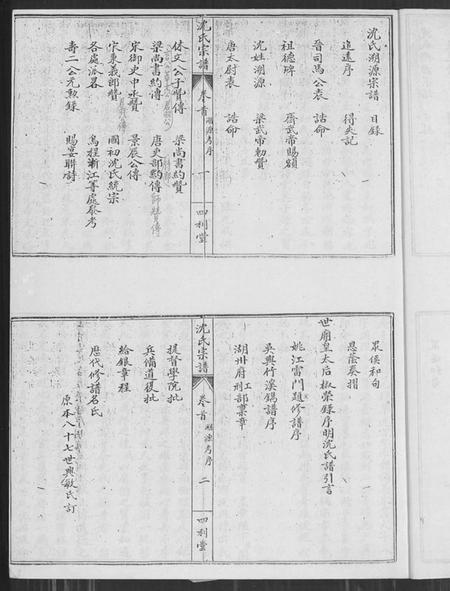 沈氏溯源宗譜 目錄
追遠序 得失記
晉司馬公表 誥命
祖德碑 齊武帝賜額
沈姓溯源 梁武帝勅贊
唐太尉表 誥命
沈氏宗譜 卷首 溯源考序 一 四利堂
休文公子贊傳 梁尚書約贊
梁尚書約傳 唐吏部傳師贊傳
宋御史中丞贊 景辰公傳
宋秉義郎贊 國初沈氏統宗
各處派畧 烏程浙江等處參考
壽二公充勲錄 賜宴聯詩
眾侯和句
恩蔭奏摺
世廟皇太后椒榮錄序明沈氏譜引言
姚江雷門題修譜序
吳興竹溪鐫譜序
湖州府刑工部稟章
沈氏宗譜 卷首 溯源考序 二 四利堂
提督學院批
兵備道復批
給銀章程
歷代修譜名氏
原本八十七世興敏氏訂